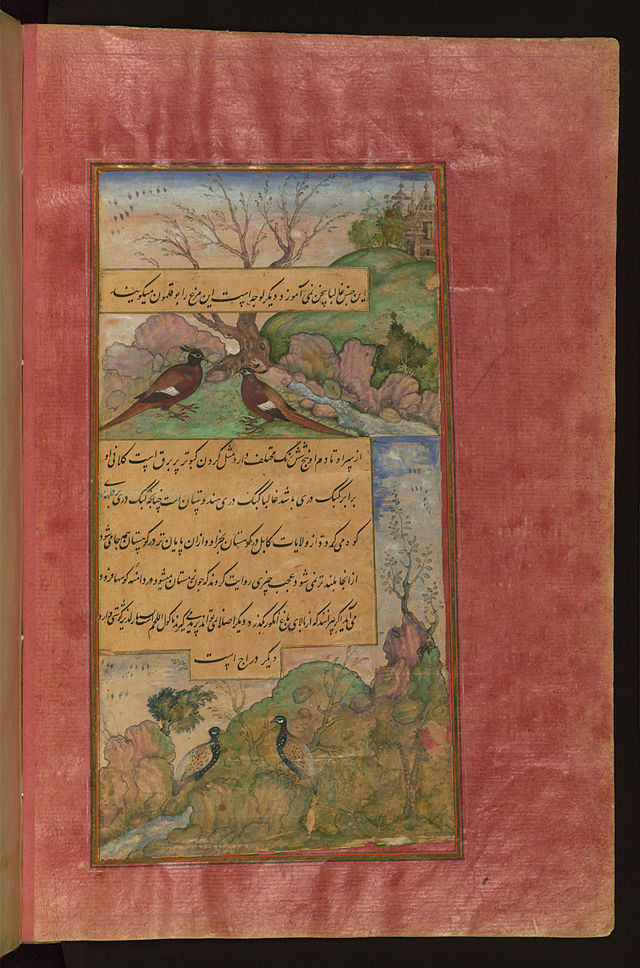 این جنس غالبا سخن نمی آموزد دیگر لوجه است این مرغ را بوقلمون میگویند
از سر او تا دم او پنج شش رنگ مختلف دارد مثل گردن کبوتر پر برق است کلانی او
برابر کبک دری باشد غالبا کبک دری هندوستان است چنانچه کبک دری
کوه می گردد از ولایات کابل در کوهستان نجراو و ازان پایان تر در کوهستان همه جا می شود
از انجا بلند تر نمی شود عجب چیزی روایت کردند که چون زمستان میشود در دامنه کوهها فرود
می آید اگر پرانند که از بالای باغ انگور بگذرد دیگر اصلا نمی تواند پرید می گیرند ماکول اللحم است بسیار لذیذ گوشتی دارد
دیگر دراج است